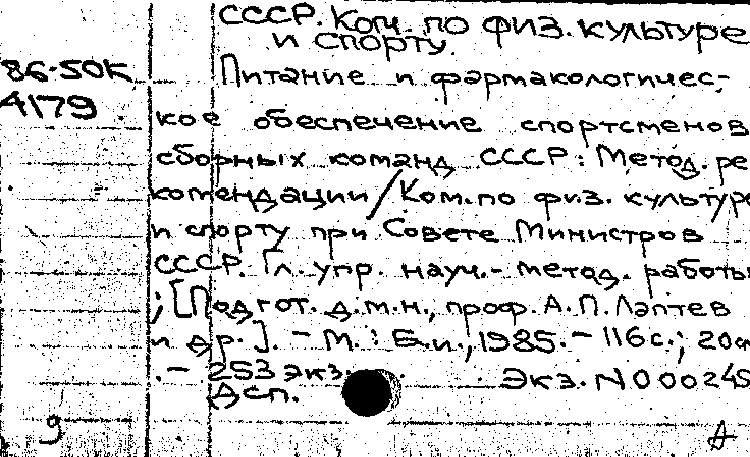 СССР. Ком. по физ. культуре
и спорту.
86-50К
А179
Питание и фармакологичес-
кое обеспечение спортсменов
сборных команд СССР: Метод. ре
комендации / Ком. по физ. культуре
и спорту при Совете Министров
СССР. Гл. упр. науч.-метод. работы
; [Подгот. д.м.н., проф. А.П. Лаптев
и др.]. - М.: Б.и., 1985. - 116 с.; 20 с
. - 253 экз. .
Дсп. Экз. N 000245
9 А